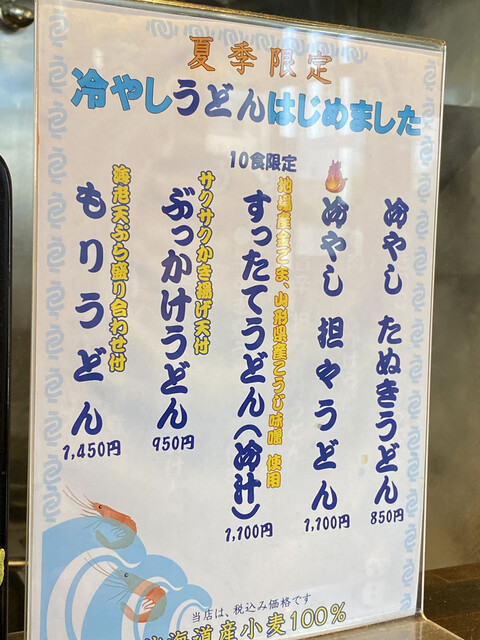 夏季限定
冷やしうどんはじめました
冷やし たぬきうどん
850円
冷やし 担々うどん
1,100円
地場産金ごま、山形県産こうじ味噌 使用
10食限定
すったてうどん(冷汁)
1,100円
サクサクかき揚げ天付
ぶっかけうどん
950円
海老天ぷら盛り合わせ付
もりうどん
1,450円
当店は、税込み価格です
北海道産小麦100%